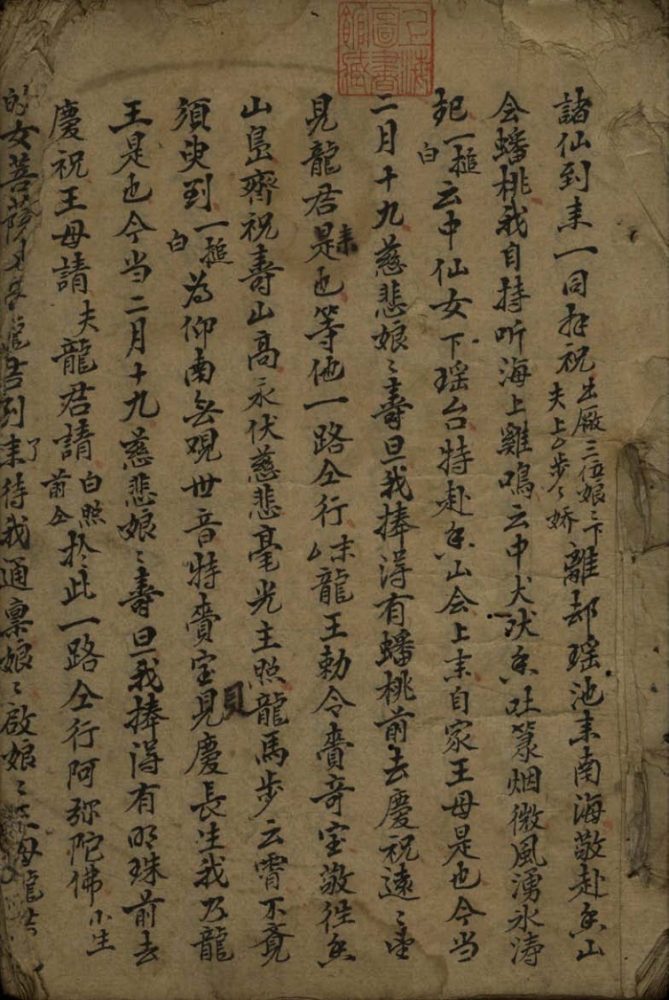 上海圖書館藏
諸仙到耒一同拜祝 三位娘〻下 夫上〻步〻娇 離却瑶池耒南海敬赴香山
会蟠桃我自持听海上雞鳴云中犬伏香吐篆烟微風湧水涛
起 一搥 白 云中仙女下瑶台特赴香山会上耒自家王母是也今当
二月十九慈悲娘〻壽旦我捧得有蟠桃前去慶祝遠〻望
見龍君耒是也等他一路仝行 龍王勅令賫奇宝敬徃香
山島齊祝壽山高永伏慈悲毫光主照龍馬步云霄不竟
須臾到 一搥 白 为仰南無观世音特賫宝貝慶長生我乃龍
王是也今当二月十九慈悲娘〻壽旦我捧得有明珠前去
慶祝王母請 夫 龍君請 白照前仝 扵此一路仝行阿弥陀佛 小生
的女菩薩 龍君到耒了待我通禀娘〻啟娘〻王母龍君